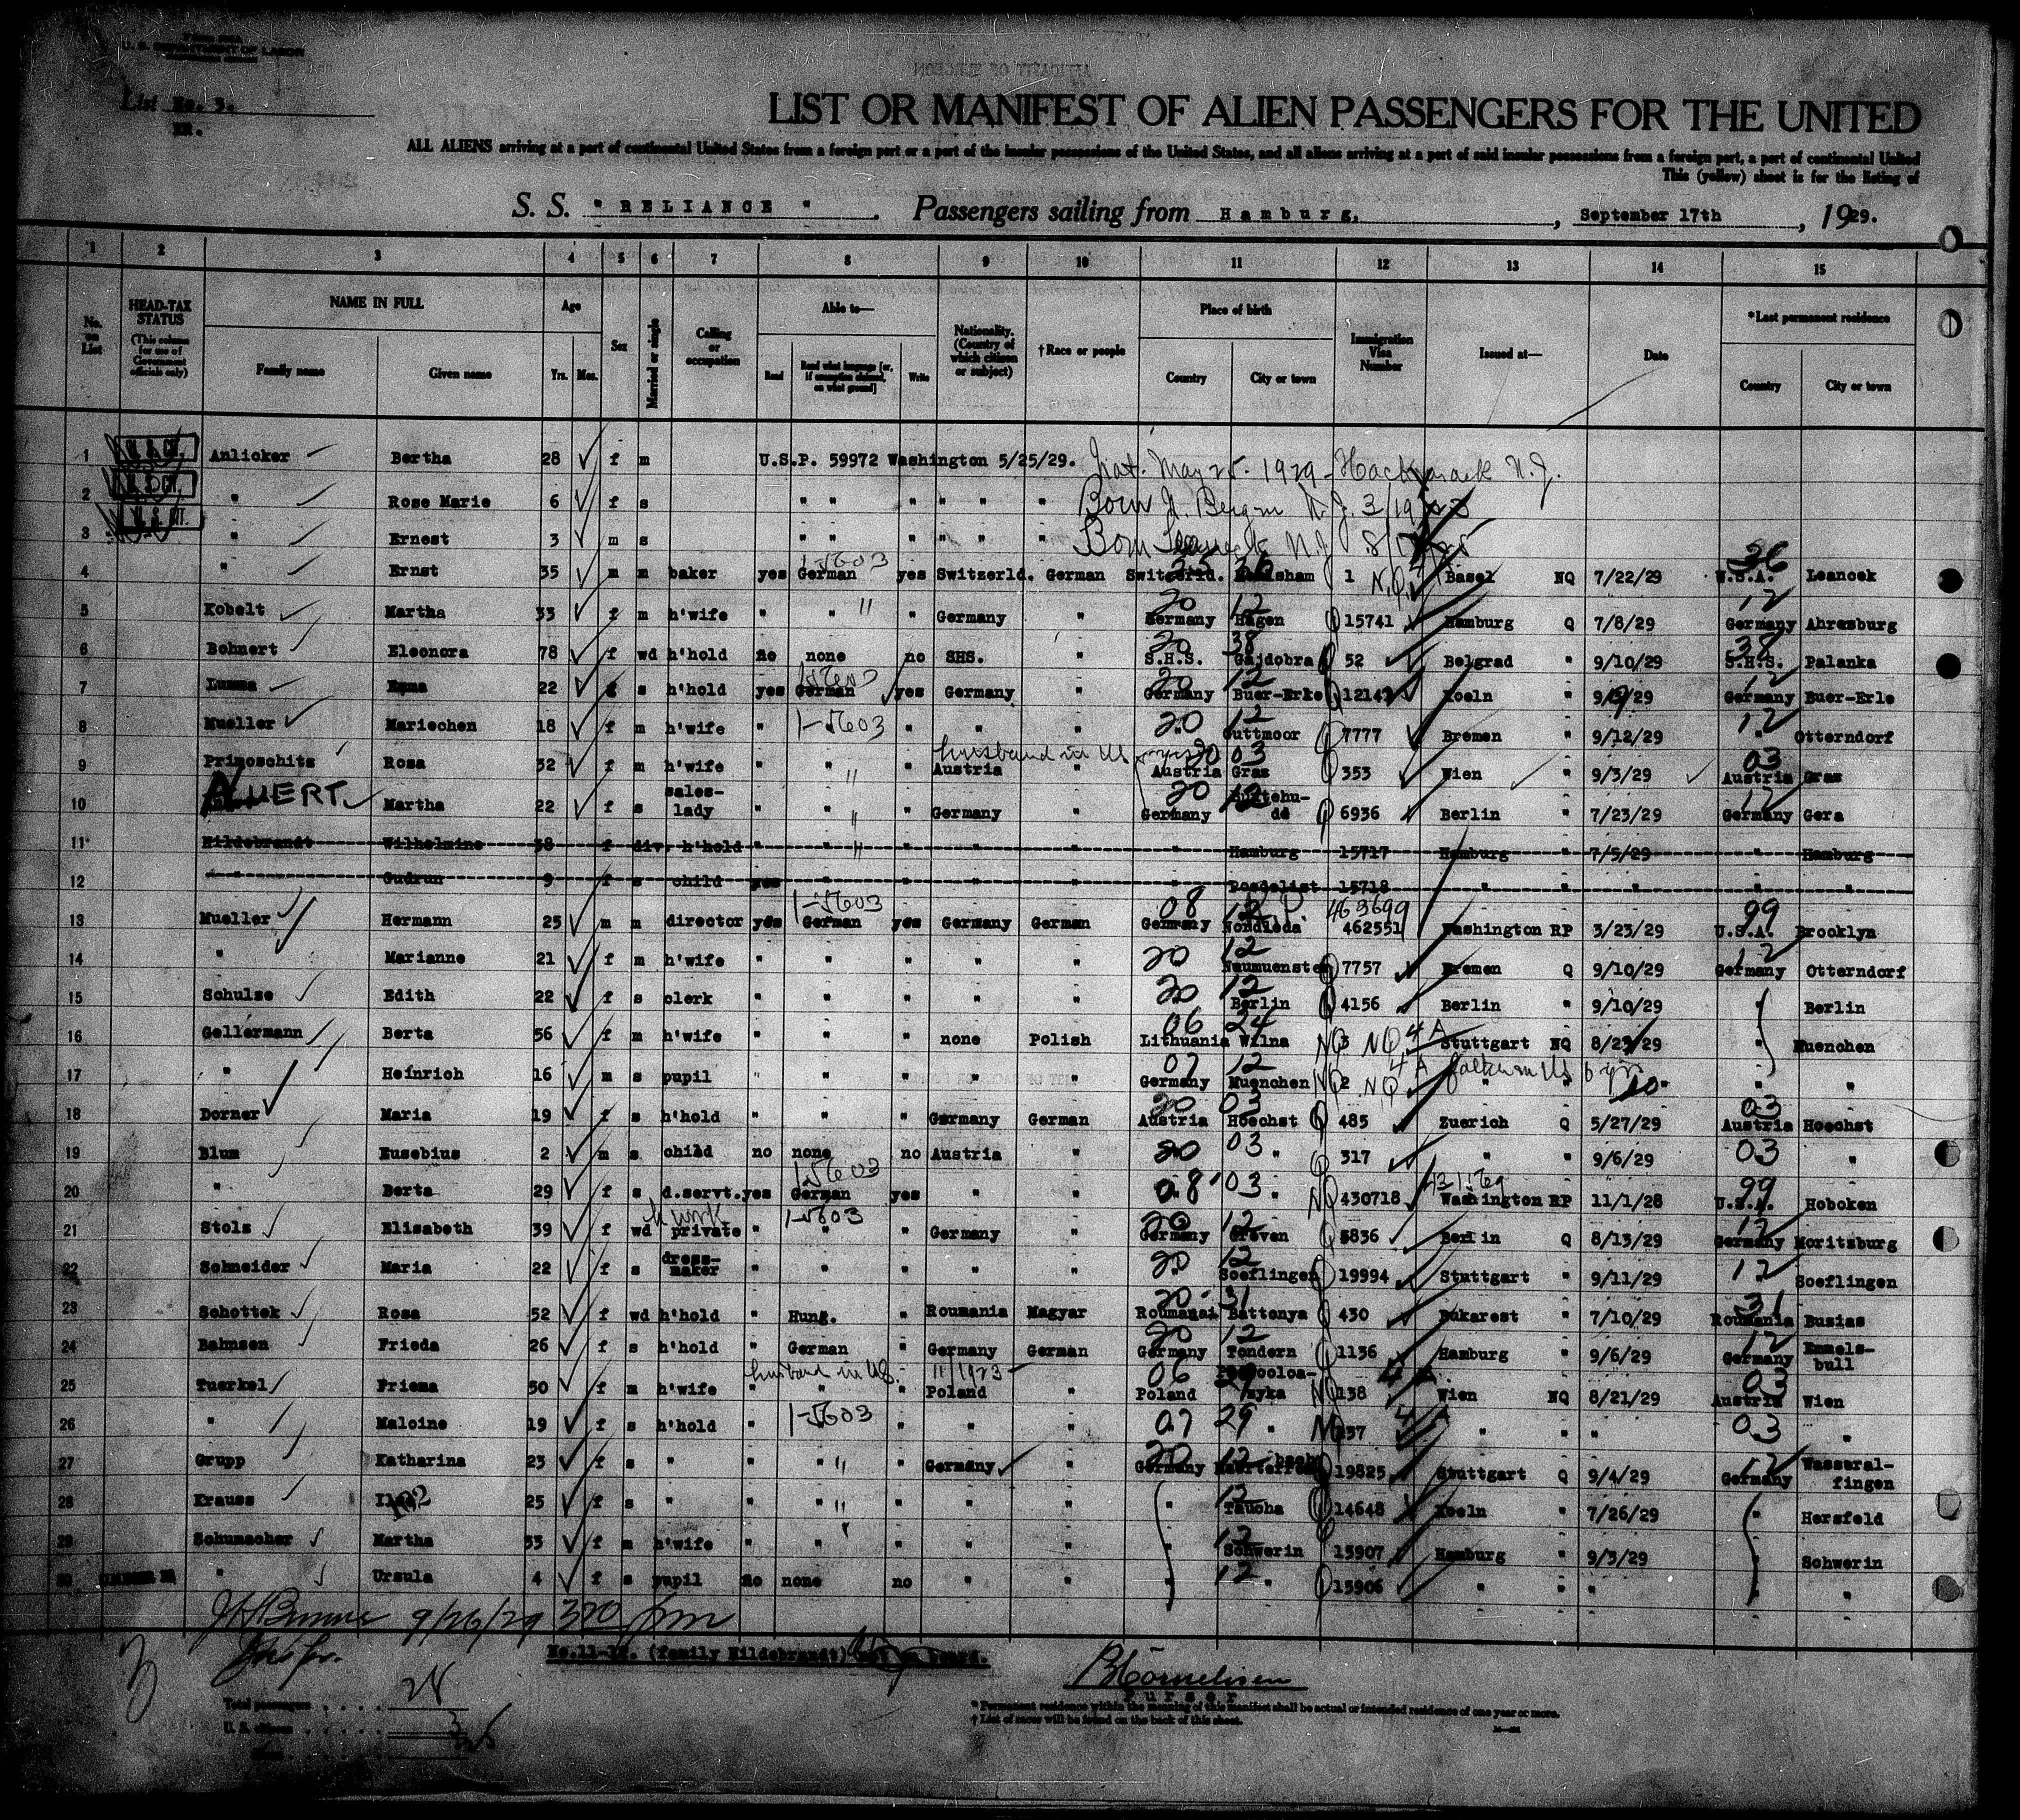 U. S. DEPARTMENT OF LABOR
List No. 3.
LIST OR MANIFEST OF ALIEN PASSENGERS FOR THE UNITED
ALL ALIENS arriving at a port of continental United States from a foreign port or a port of the insular possessions of the United States, and all aliens arriving at a port of said insular possessions from a foreign port, a port of continental United
This (yellow) sheet is for the listing of
S. S. " RELIANCE " Passengers sailing from Hamburg, September 17th, 1929.
1 2 3 4 5 6 7 8 9 10 11 12 13 14 15
No. on List HEAD-TAX STATUS (This column for use of Government officials only) NAME IN FULL Family name Given name Age Yrs. Mos. Sex Married or single Calling or occupation Able to— Read Read what language [or, if exemption claimed, on what ground] Write Nationality. (Country of which citizen or subject) †Race or people Place of birth Country City or town Immigration Visa Number Issued at— Date *Last permanent residence Country City or town
1 U. S. CIT. Anlicker Bertha 28 f m U.S.P. 59972 Washington 5/25/29. Nat. May 25. 1929 - Hackensack N.J.
2 U. S. CIT. " Rose Marie 6 f s " " " " " Born N. Bergen N.J. 3/19
3 U. S. CIT. " Ernest 3 m s " " " " " Born N.J.
4 " Ernst 35 m m baker yes German yes Switzerld. German Switzerld. 1 N.Q. Basel NQ 7/22/29 U.S.A. Leancek
5 Kobelt Martha 33 f m h'wife " " " Germany " Germany Hagen 15741 Hamburg Q 7/8/29 Germany Ahrensburg
6 Bohnert Eleonora 78 f wd h'hold no none no SHS. " S.H.S. Gajdobra 52 Belgrad " 9/10/29 S.H.S. Palanka
7 Lumma Emma 22 f s h'hold yes German yes Germany " Germany Buer-Erke 12142 Koeln " 9/9/29 Germany Buer-Erle
8 Mueller Mariechen 18 f m h'wife " 1-5603 " " " " Guttmoor 7777 Bremen " 9/12/29 " Otterndorf
9 Primoschits Rosa 32 f m h'wife " " " husband in US Austria " Austria Graz 353 Wien " 9/3/29 Austria Graz
10 Martha 22 f s sales-lady " " " Germany " Germany Buxtehu-de 6936 Berlin " 7/23/29 Germany Gera
11 Hildebrandt Wilhelmine 38 f div. h'hold " " " " " " Hamburg 15717 Hamburg " 7/5/29 " Hamburg
12 " Gudrun 9 f s child yes " " " " " 15718 " " " " "
13 Mueller Hermann 25 m m director yes German yes Germany German Germany 463699 462551 Washington RP 3/23/29 U.S.A. Brooklyn
14 " Marianne 21 f m h'wife " " " " " " Neumuenster 7757 Bremen Q 9/10/29 Germany Otterndorf
15 Schulze Edith 22 f s clerk " " " " " " Berlin 4156 Berlin " 9/10/29 " Berlin
16 Gellermann Berta 56 f m h'wife " " " none Polish Lithuania Wilna 3 NQ 4A Stuttgart NQ 8/23/29 " Muenchen
17 " Heinrich 16 m s pupil " " " " " Germany Muenchen 2 NQ 4A father in US " " " " "
18 Dorner Maria 19 f s h'hold " " " Germany German Austria Hoechst 485 Zuerich Q 5/27/29 Austria Hoechst
19 Blum Eusebius 2 m s child no none no Austria " " " 317 " " 9/6/29 " "
20 " Berta 29 f s d.servt. yes German yes " " " " 430718 Washington RP 11/1/28 U.S.A. Hoboken
21 Stolz Elisabeth 39 f wd private " " " Germany " Germany Greven 5836 Berlin Q 8/13/29 Germany Moritzburg
22 Schneider Maria 22 f s dress-maker " " " " " " Soeflingen 19994 Stuttgart " 9/11/29 " Soeflingen
23 Schottek Rosa 52 f wd h'hold " Hung. " Roumania Magyar Roumanai Battonya 430 Bukarest " 7/10/29 Roumania Busias
24 Bahnsen Frieda 26 f s h'hold " German " Germany German Germany Tondern 1136 Hamburg " 9/6/29 Germany Emmels-bull
25 Tuerkel Priema 50 f m h'wife husband in US. 11/1923 " " " Poland " Poland 138 Wien NQ 8/21/29 Austria Wien
26 " Malcine 19 f s h'hold " 1-5603 " " " " " 137 " " " " "
27 Grupp Katharina 23 f s " " " " Germany " Germany 19825 Stuttgart Q 9/4/29 Germany Wasseral-fingen
28 Krauss 25 f s " " " " " " " Taucha 14648 Koeln " 7/26/29 " Hersfeld
29 Schumacher Martha 33 f m h'wife " " " " " " Schwerin 15907 Hamburg " 9/3/29 " Schwerin
30 " Ursula 4 f s pupil no none no " " " " 15906 " " " " "
9/26/29 320 pm
No.11-12. (family Hildebrandt) not on board.
Purser
Total passengers 28
U. S. citizens 3
* Permanent residence within the meaning of this manifest shall be actual or intended residence of one year or more.
† List of races will be found on the back of this sheet.